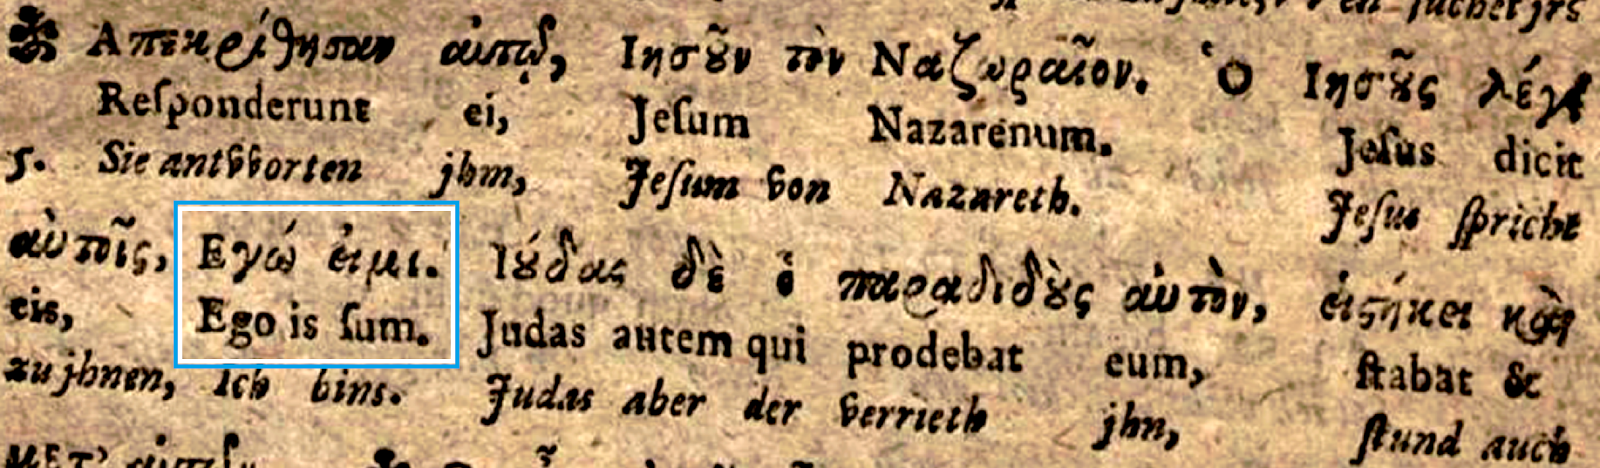 Ἀπεκρίθησαν αὐτῷ, Ιησοῦν τὸν Ναζωραῖον. Ὁ Ιησοῦς λέγει
Reſponderunt ei, Jeſum Nazarenum. Jeſus dicit
5. Sie antvvorten jhm, Jeſum von Nazareth. Jeſus ſpricht
αὐτοῖς, Εγώ εἰμι. Ιούδας δὲ ὁ παραδιδοὺς αὐτὸν, εἱστήκει καὶ
eis, Ego is ſum. Judas autem qui prodebat eum, ſtabat &
zu jhnen, Ich bins. Judas aber der verrieth jhn, ſtund auch